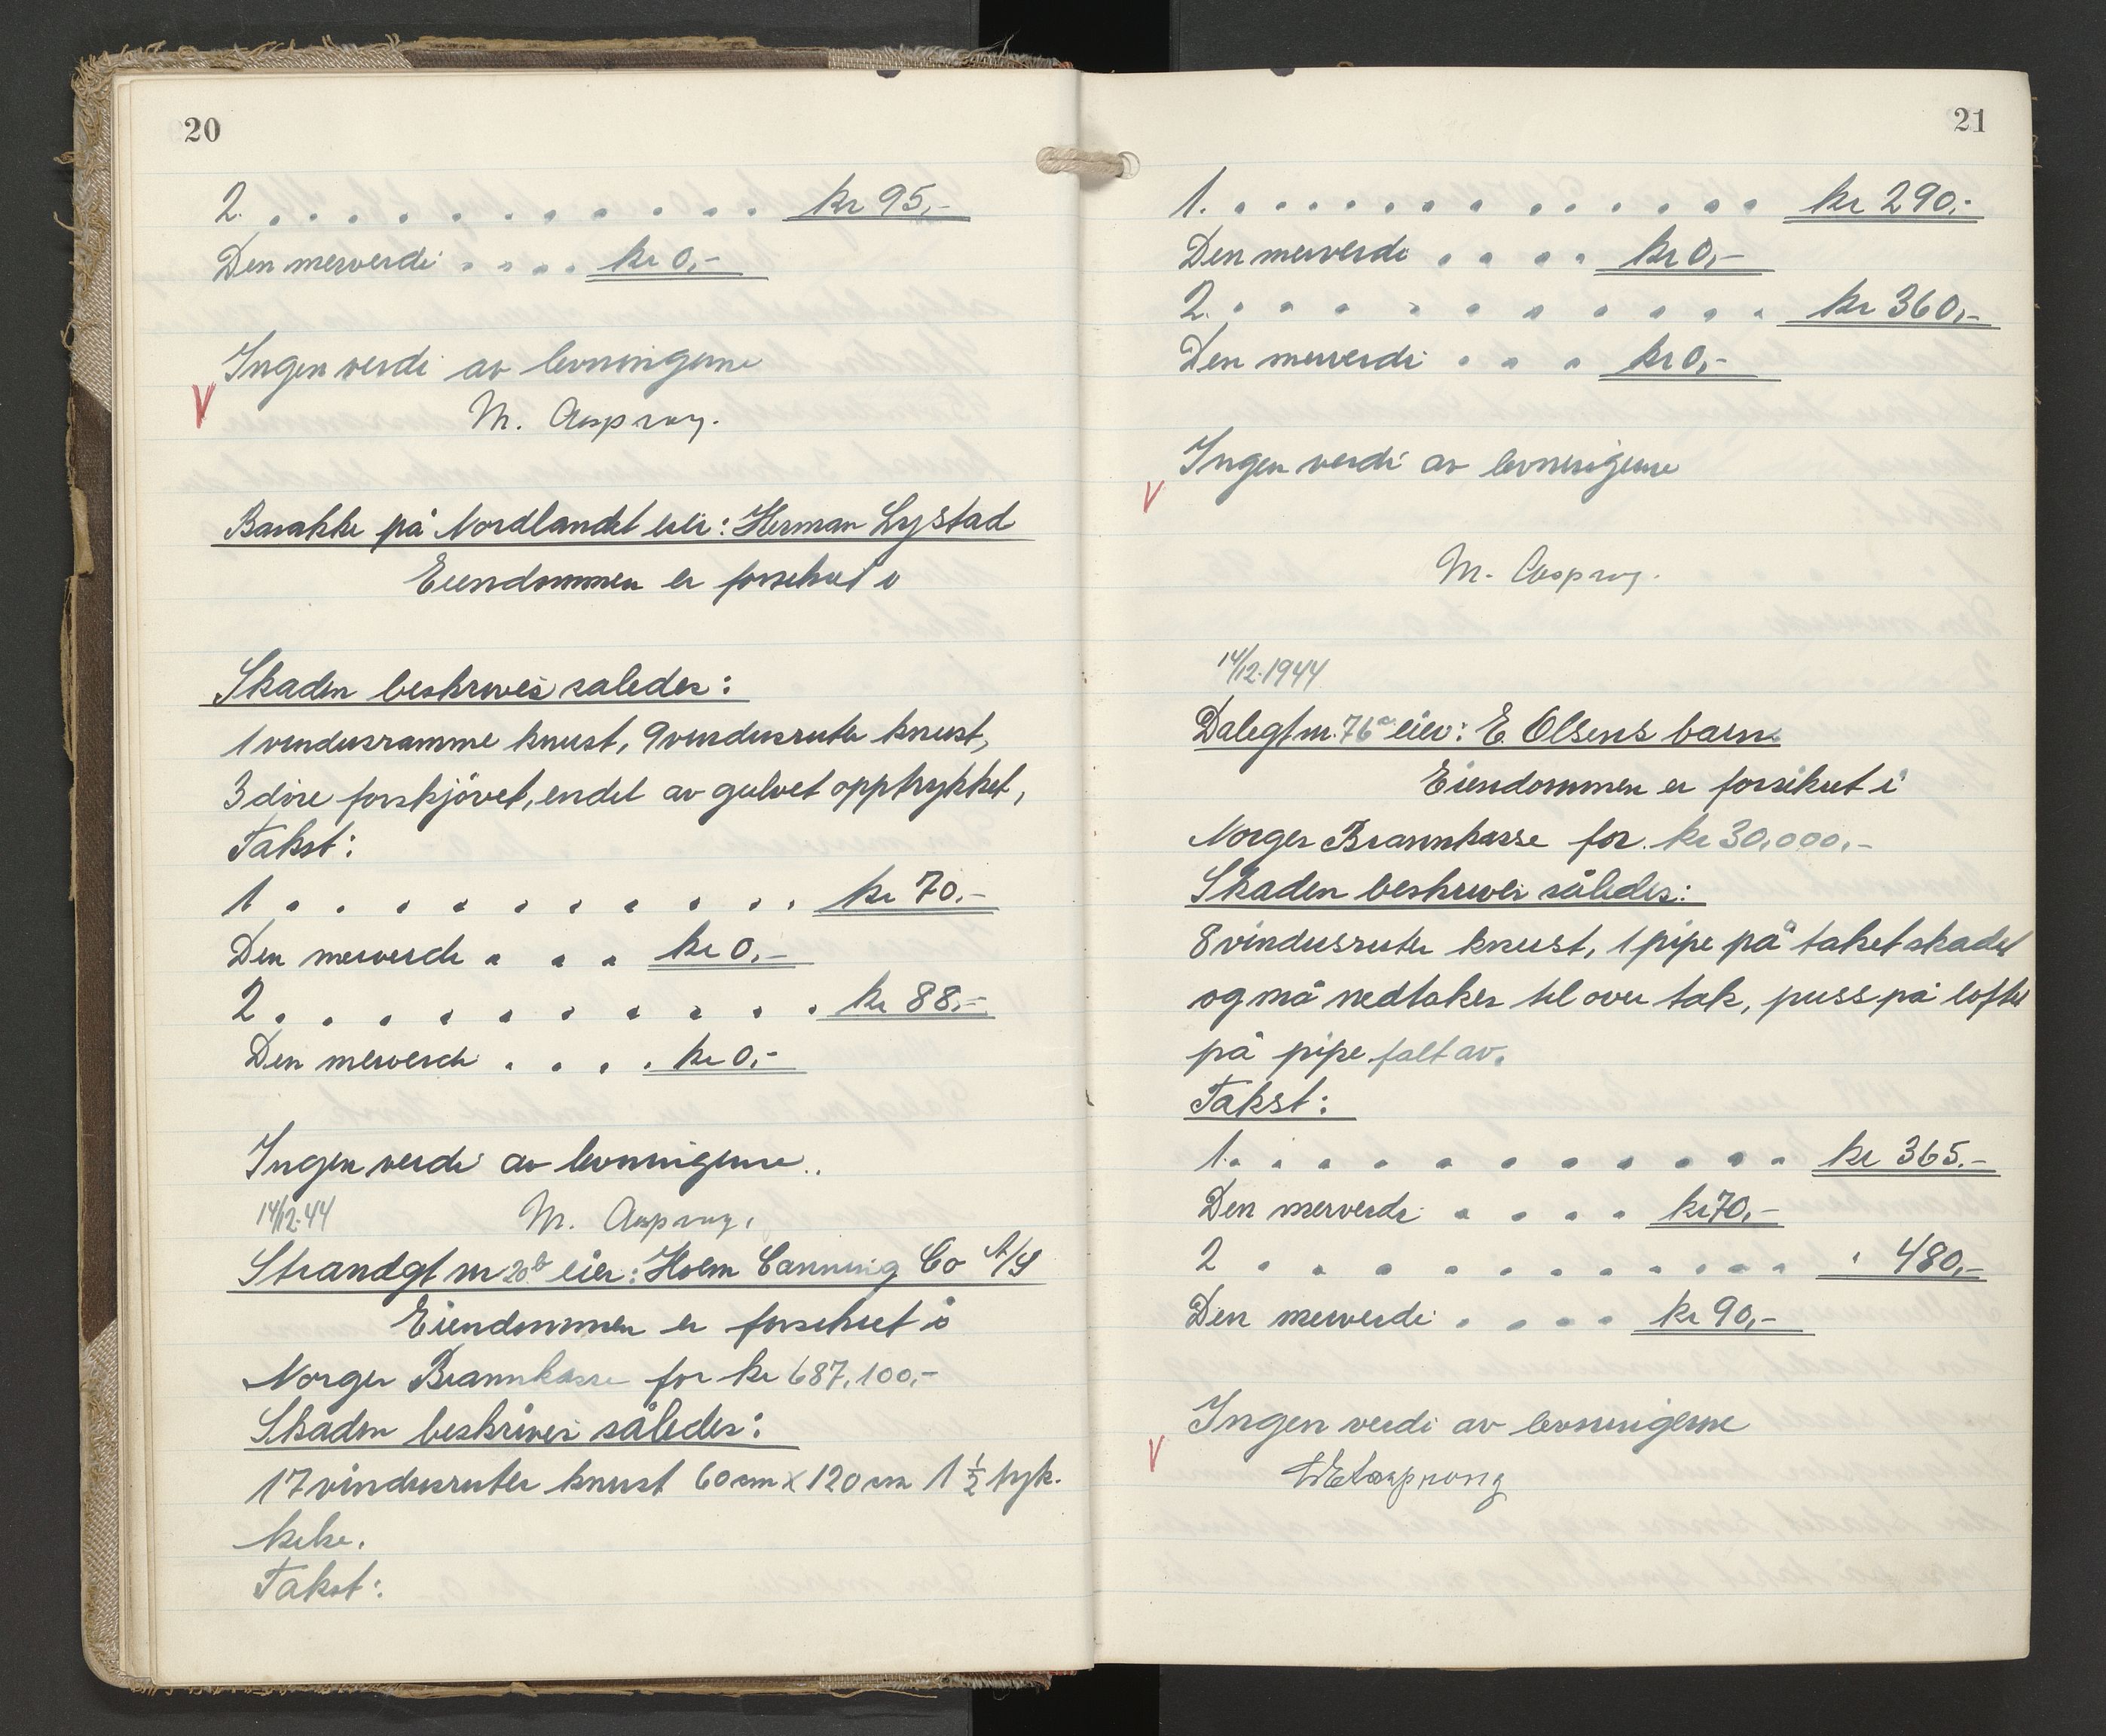 20
2. . . . . . . . . . . kr 95,-
Den merverdi . . . . kr 0,-
Ingen verdi av levningerne
V
M. Aasprong.
Barakke på Nordlandet eier: Herman Lystad
Eiendommen er forsikret i
Skaden beskrives saledes:
1 vindusramme knust, 9 vindusruter knust,
3 döre forskjövet, endel av gulvet opptrykket,
Takst:
1 . . . . . . . . . . kr 70.-
Den merverdi . . . kr 0,-
2. . . . . . . . . . . kr 88,-
Den merverdi . . . . kr 0,-
Ingen verdi av levningerne..
14/12.44 M. Aasprong,
Strandgt nr 20b eier: Holm Canning Co A/S
Eiendommen er forsikret i
Norges Brannkasse for kr 687,100,-
Skaden beskrives således:
17 vindusruter knust 60 cm x 120 cm 1 1/2 tyk.
kelse.
Takst:
21
1. . . . . . . . . . . . . kr 290,-
Den merverdi . . . . kr 0,-
2. . . . . . . . . . . kr 360,-
Den merverdi . . . kr 0,-
Ingen verdi av levningerne
V
M. Aasprong.
14/12.1944
Dalegt nr. 76a eier: E. Olsens barn.
Eiendommen er forsikret i
Norges Brannkasse for kr 30,000,-
Skaden beskrives således:
8 vindusruter knust, 1 pipe på taket skadet
og må nedtakes til over tak, puss på loftet
på pipe falt av.
Takst:
1. . . . . . . . . . . kr 365.-
Den merverdi . . . . kr 70,-
2 . . . . . . . . . . . 480,-
Den merverdi . . . . kr 90,-
Ingen verdi av levningerne
V